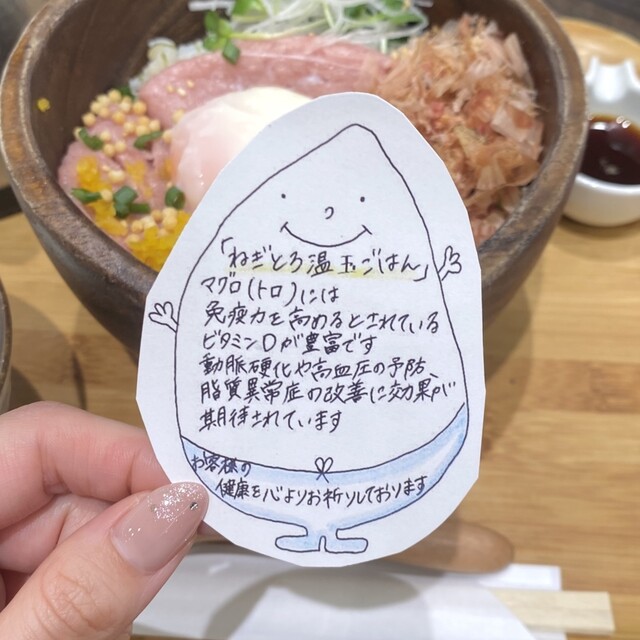 「ねぎとろ温玉ごはん」
マグロ(トロ)には
免疫力を高めるとされている
ビタミンDが豊富です
動脈硬化や高血圧の予防、
脂質異常症の改善に効果が
期待されています
お客様の
健康を心よりお祈りしております